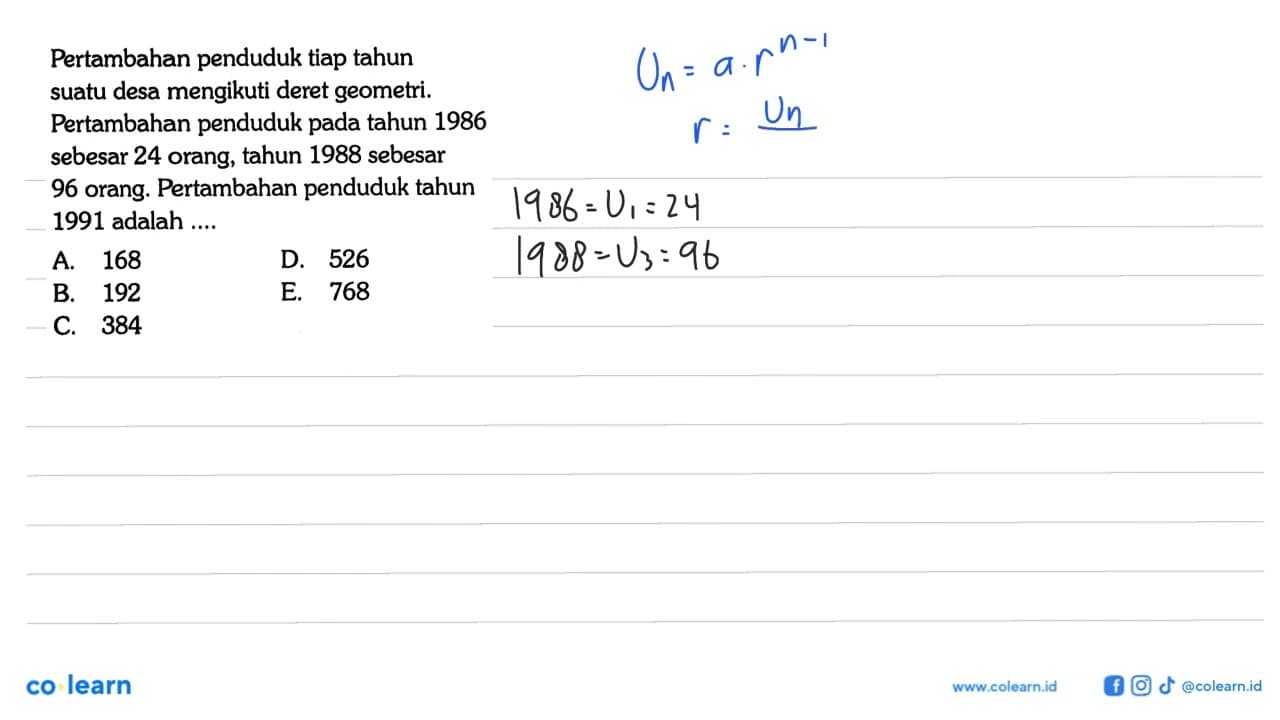 Pertambahan penduduk tiap tahun
suatu desa mengikuti deret geometri.
Pertambahan penduduk pada tahun 1986
sebesar 24 orang, tahun 1988 sebesar
96 orang. Pertambahan penduduk tahun
1991 adalah ....
A. 168
B. 192
C. 384
D. 526
E. 768
Un = a . r^n-1
r = Un
1986 = U1 = 24
1988 = U3 = 96
co learn
www.colearn.id
@colearn.id